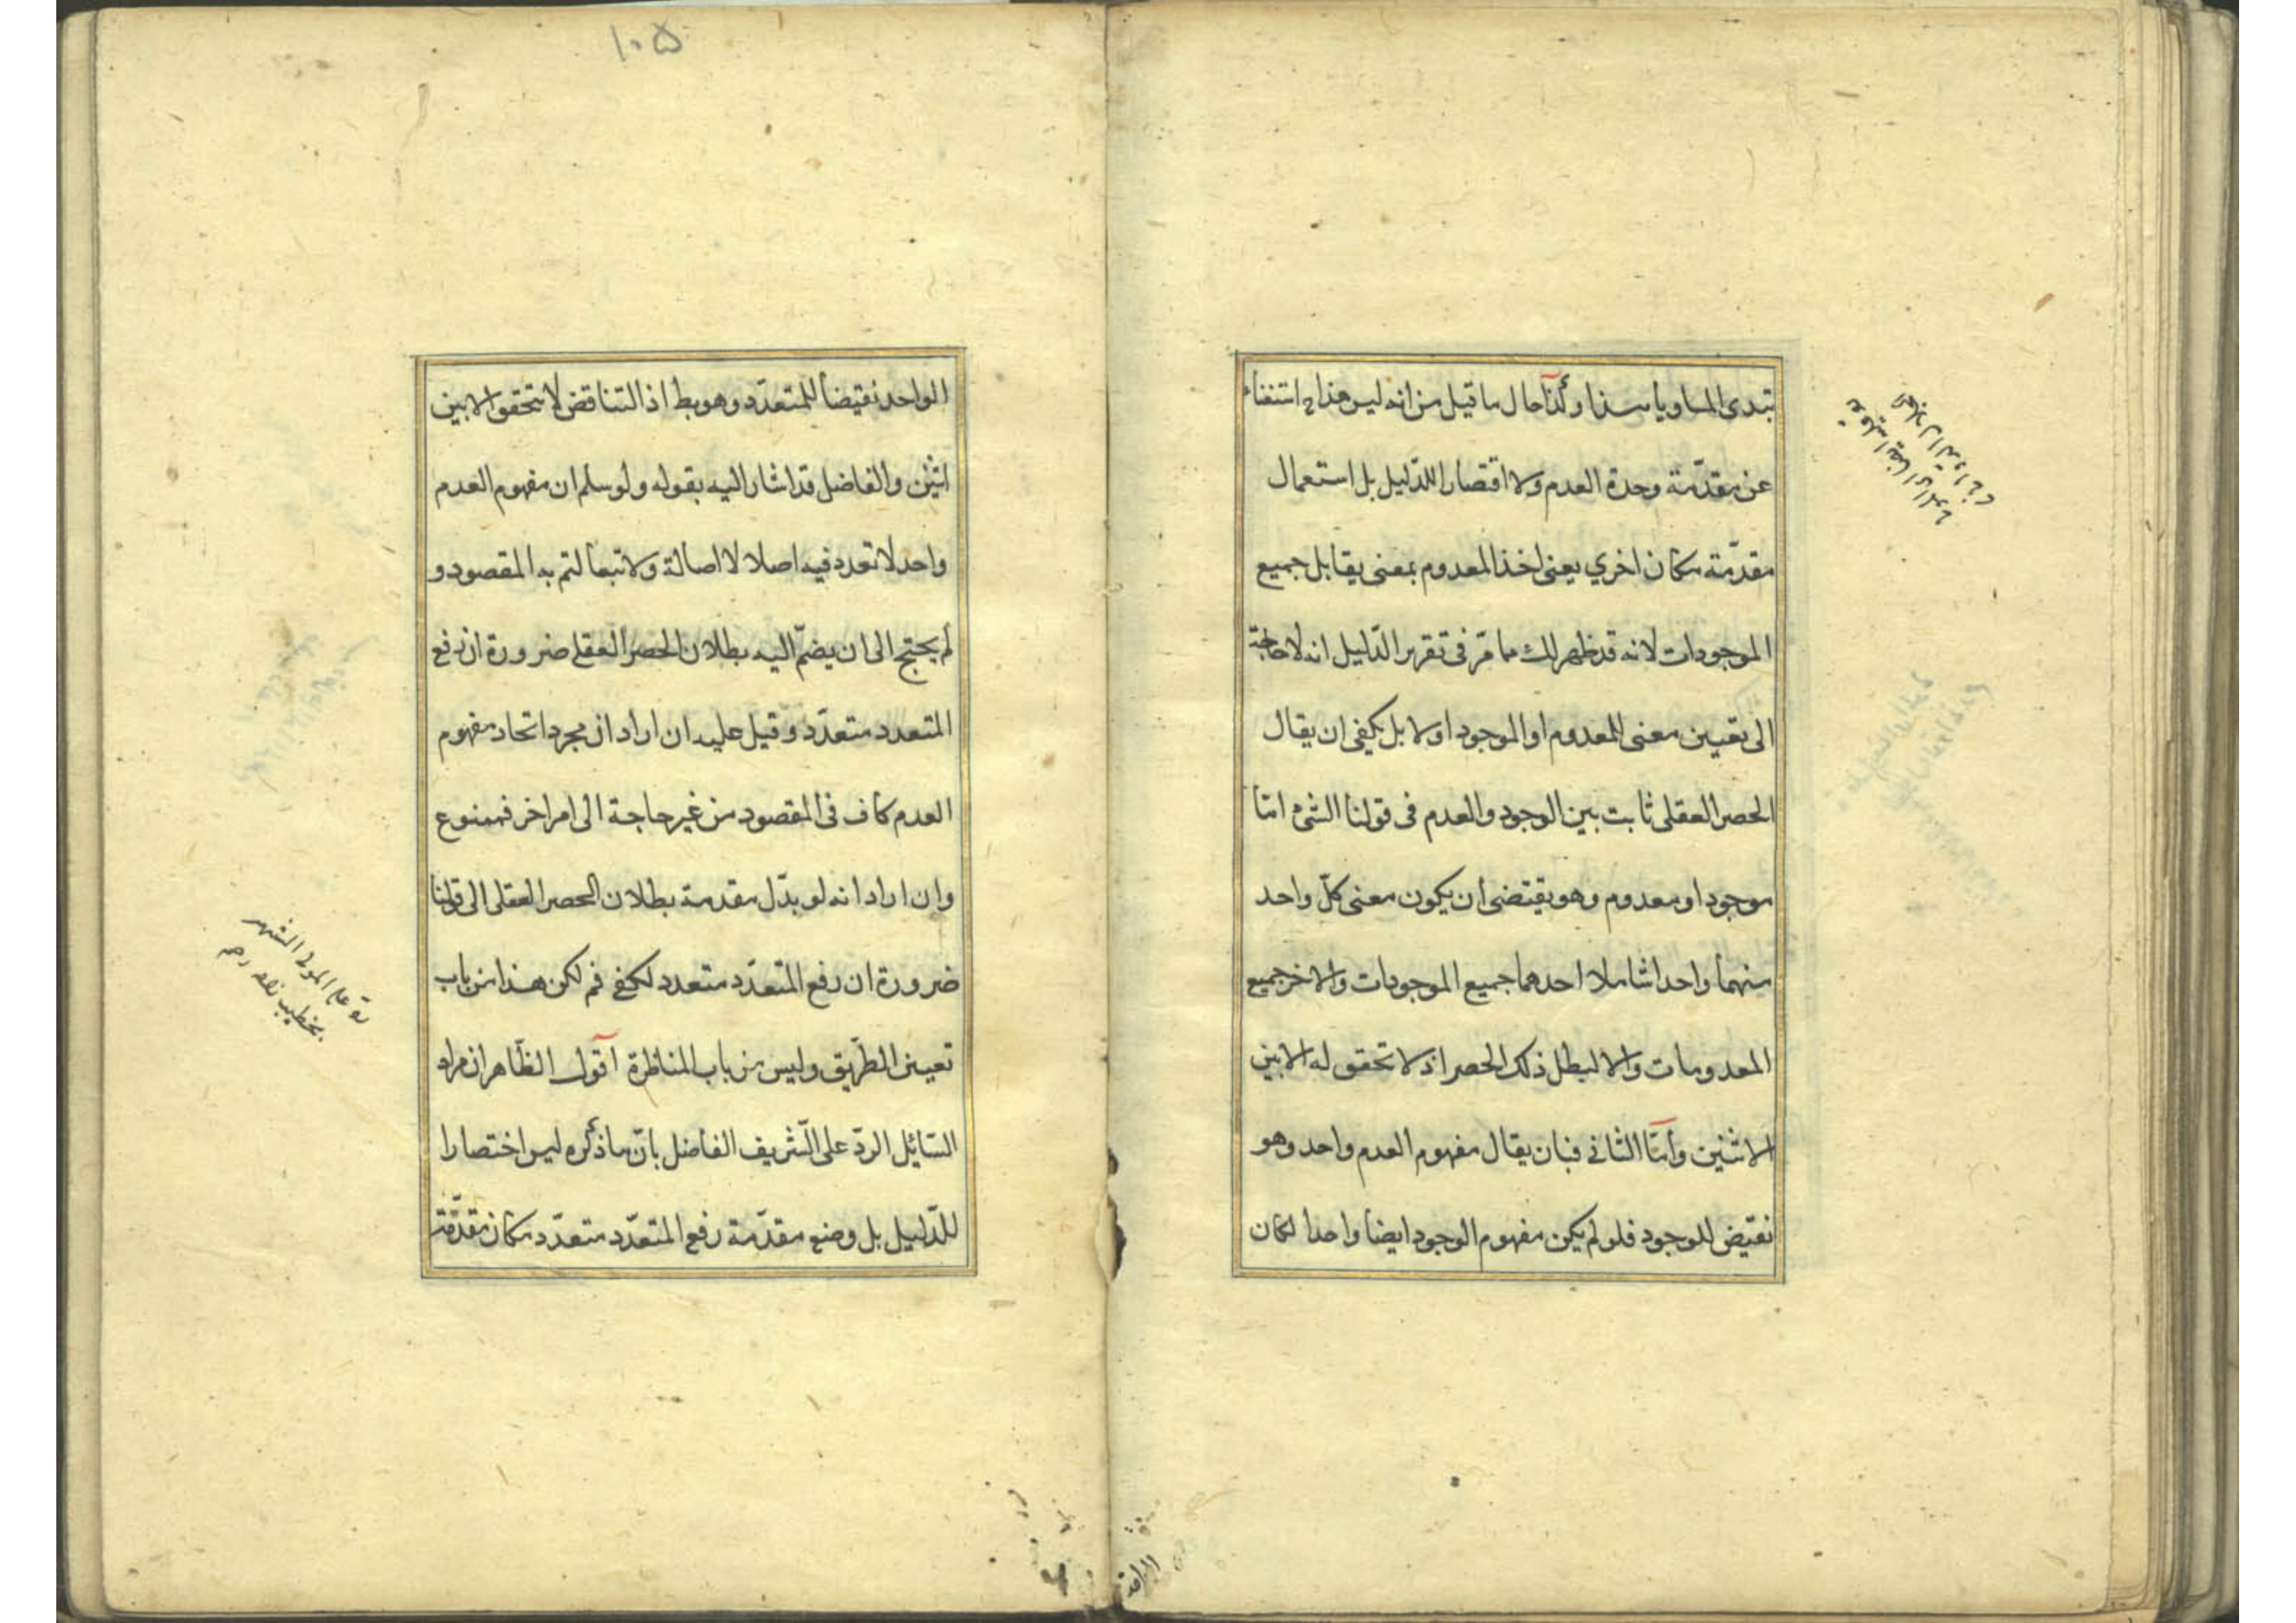 تبدى المساويا سندا وكذا حال ما قيل من انه ليس هذا ح استغناء
عن مقدّمة وحدة العدم ولا اقتصارا للدّليل بل استعمال
مقدّمة مكان اخري يعنى اخذ المعدوم بمعنى يقابل جميع
الموجودات لانه قد ظهر لك مما مرّ فى تقرير الدّليل انه لا حاجة
الى تعيين معنى المعدوم او الموجود اولا بل يكفى ان يقال
الحصر العقلى ثابت بين الوجود والعدم فى قولنا الشئ امّا
موجود او معدوم وهو يقتضى ان يكون معنى كلّ واحد
منهما واحدا شاملا احدهما جميع الموجودات والاخر جميع
المعدومات والا لبطل ذلك الحصر اذ لا تحقق له الا بين
الاثنين وأمّا الثانى فبان يقال مفهوم العدم واحد وهو
نقيض للوجود فلو لم يكن مفهوم الوجود ايضا واحدا لكان
١٠۵
الواحد نقيضا للمتعدّد وهو بط اذ التناقض لا يتحقق الا بين
اثنين والفاضل قد اشار اليه بقوله ولو سلم ان مفهوم العدم
واحد لا تعدد فيه اصلا لا اصالة ولا تبعا لتم به المقصود و
لم يحتج الى ان يضمّ اليه بطلان الحصر العقلى ضرورة ان رفع
المتعدد متعدّد وقيل عليه ان اراد ان مجرد اتحاد مفهوم
العدم كاف فى المقصود من غير حاجة الى امر اخر فممنوع
وان اراد انه لو بدّل مقدمة بطلان الحصر العقلى الى قولنا
ضرورة ان رفع المتعدّد متعدد لكفى فم لكن هذا من باب
تعيين الطّريق وليس من باب المناظرة اقول الظّاهر ان مراد
السّايل الردّ على الشّريف الفاضل بانّ ما ذكره ليس اختصارا
للدّليل بل وضع مقدّمة رفع المتعدّد متعدّد مكان مقدّمة
رد على المولى الشهير
بخطيب زاده رحه